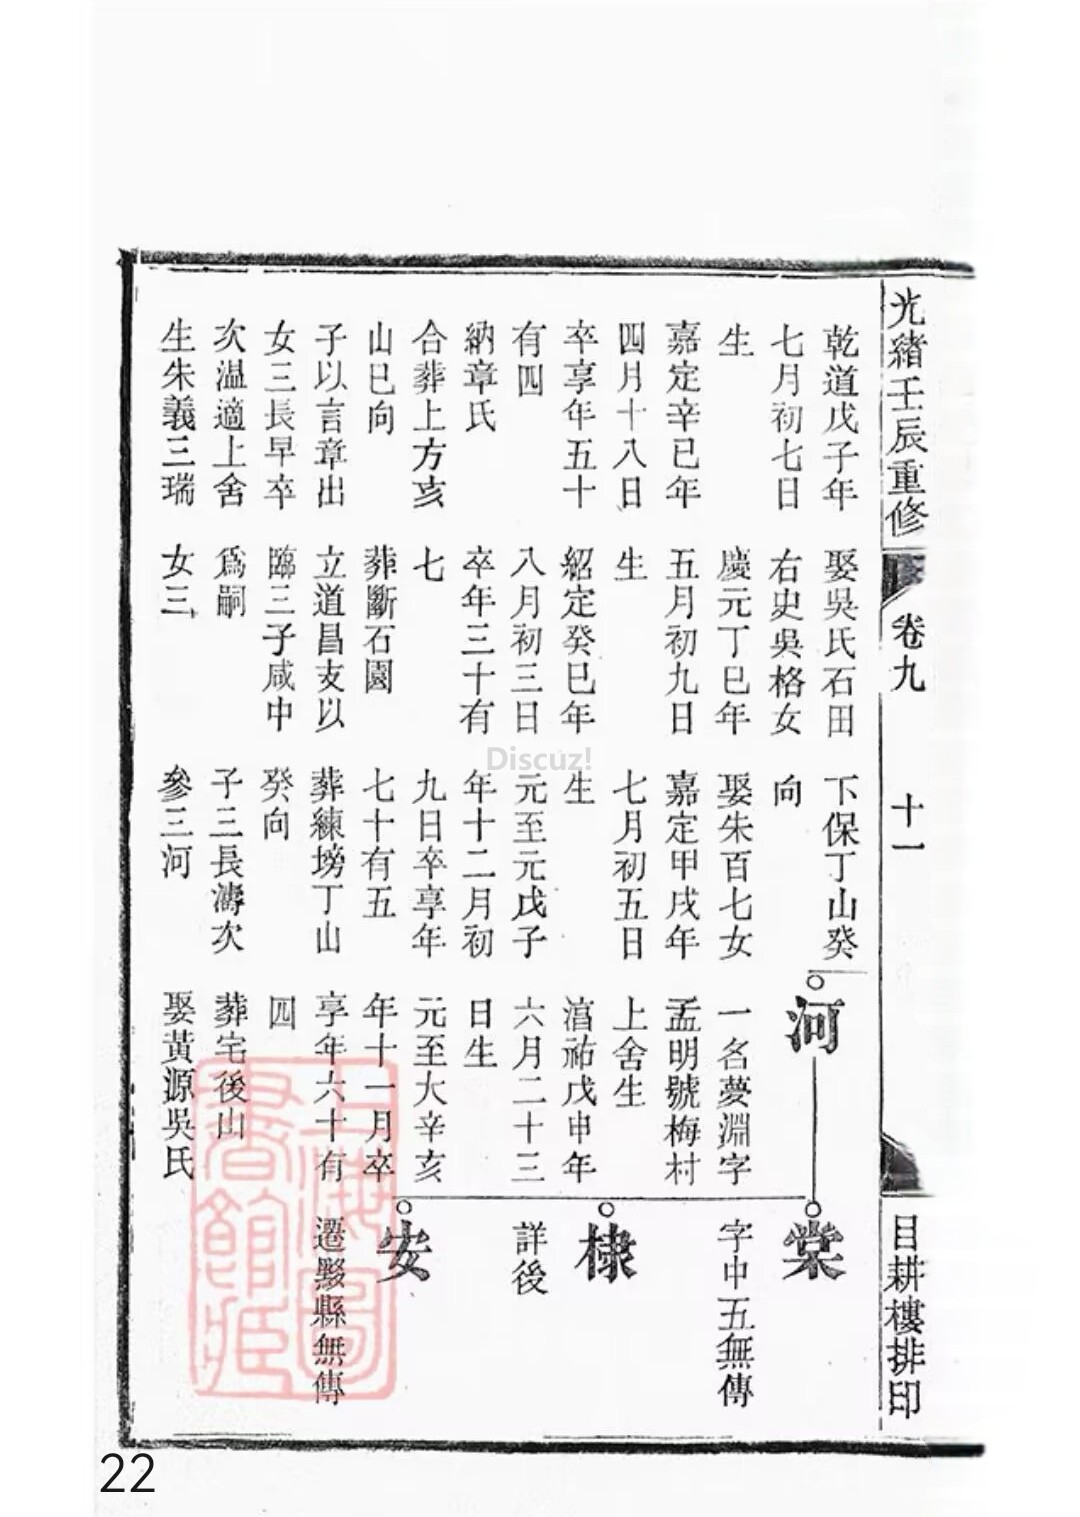 光緒壬辰重修
卷九
十一
目耕樓排印
乾道戊子年
七月初七日
生
嘉定辛巳年
四月十八日
卒享年五十
有四
納章氏
合葬上方亥
山巳向
子以言章出
女三長早卒
次溫適上舍
生朱義三瑞
娶吳氏石田
右史吳格女
慶元丁巳年
五月初九日
生
紹定癸巳年
八月初三日
卒年三十有
七
葬斷石園
立道昌支以
臨三子咸中
爲嗣
女三
下保丁山癸
向
娶朱百七女
嘉定甲戌年
七月初五日
生
元至元戊子
年十二月初
九日卒享年
七十有五
葬練塝丁山
癸向
子三長濤次
參三河
河
一名夢淵字
孟明號梅村
上舍生
淳祐戊申年
六月二十三
日生
元至大辛亥
年十一月卒
享年六十有
四
葬宅後山
娶黃源吳氏
棠
字中五無傳
棣
詳後
安
遷黟縣無傳
上海圖
書館藏
Discuz!
22